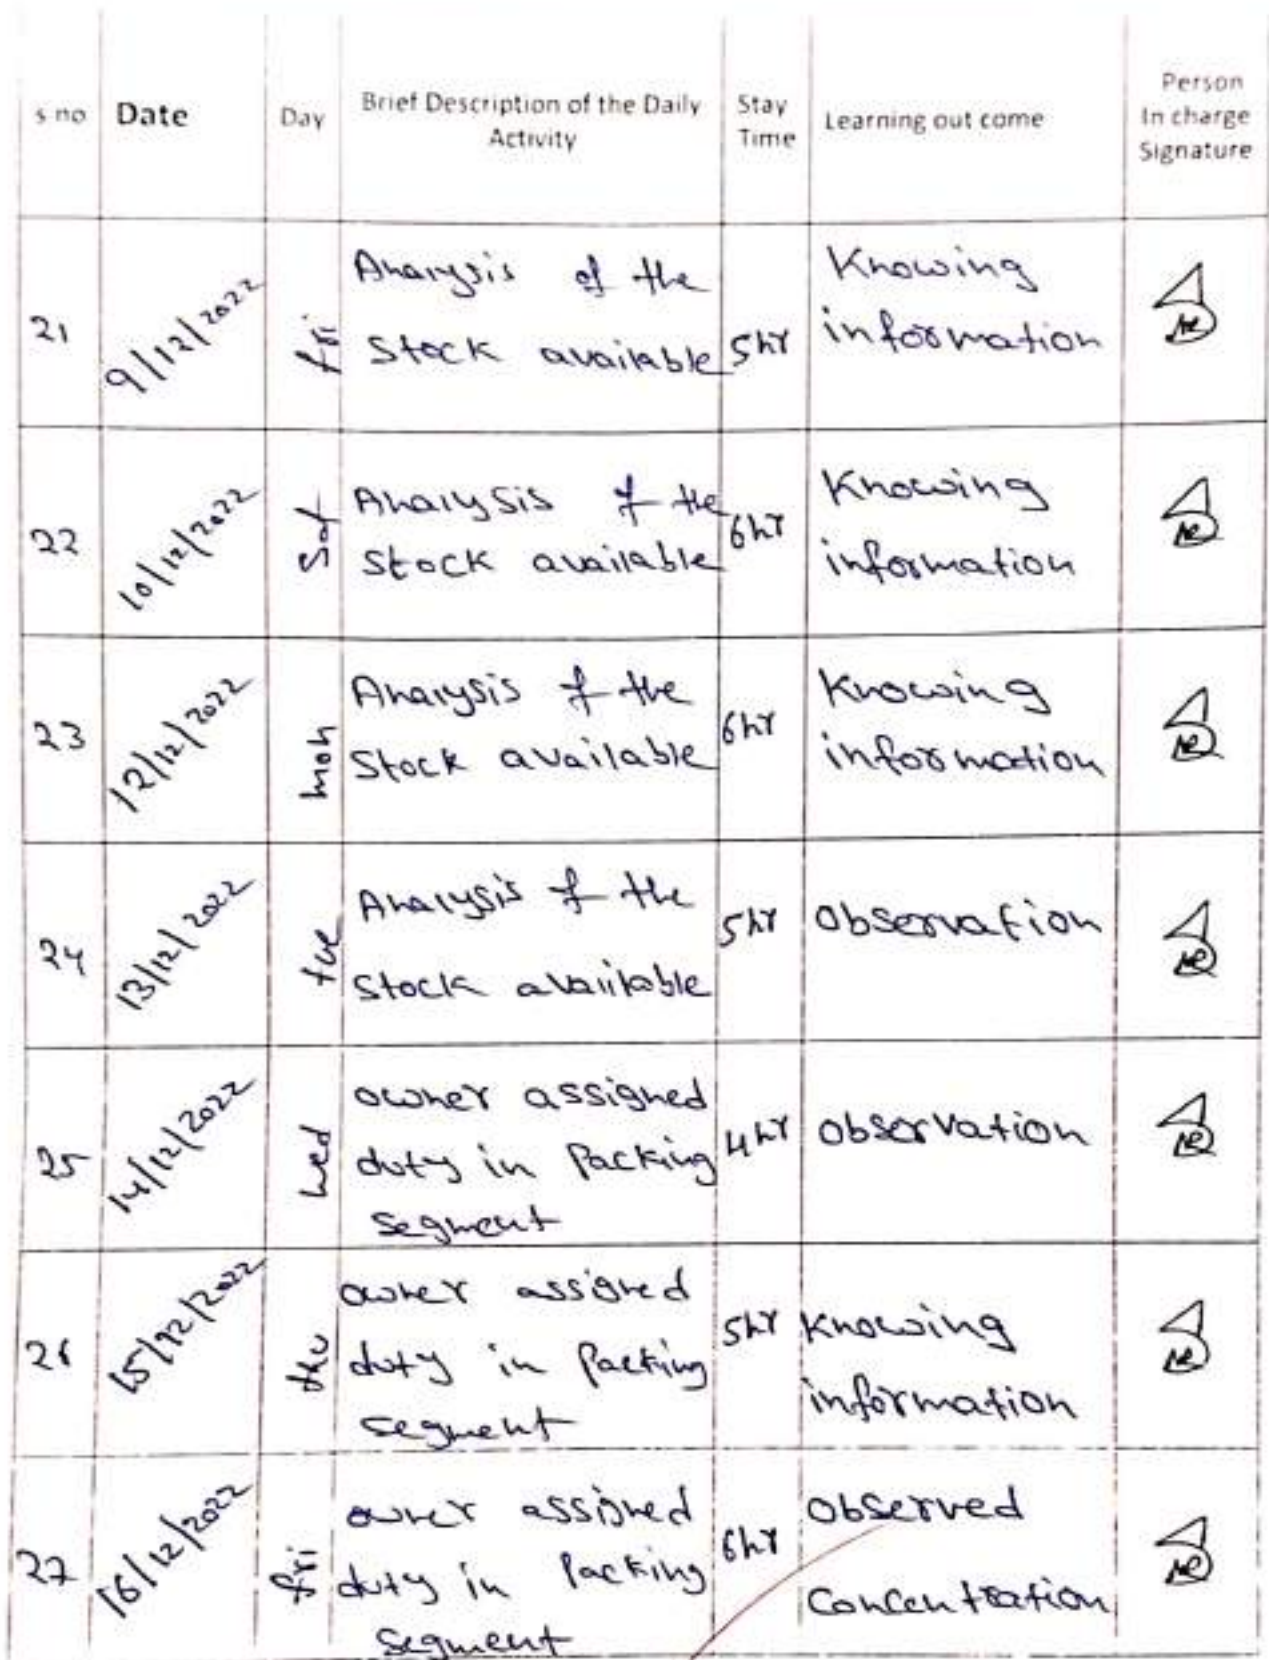 s no Date Day Brief Description of the Daily Activity Stay Time Learning out come Person In charge Signature
21 9/12/2022 fri Analysis of the
Stock available 5hr Knowing
information
22 10/12/2022 Sat Analysis of the
Stock available 6hr Knowing
information
23 12/12/2022 mon Analysis of the
Stock available 6hr Knowing
information
24 13/12/2022 tue Analysis of the
Stock available 5hr Observation
25 14/12/2022 wed owner assigned
duty in Packing
segment 4hr observation
26 15/12/2022 thu owner assigned
duty in Packing
segment 5hr Knowing
information
27 16/12/2022 fri owner assigned
duty in Packing
segment 6hr observed
Concentration